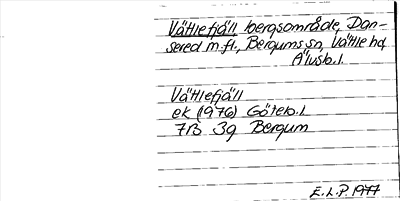 Vättlefjäll bergsområde, Dan-
sered m.fl., Bergums sn, Vättle hd,
Älvsb. l.
Vättlefjäll
ek (1976) Göteb. l
7B 3g Bergum
E.L.P. 1977